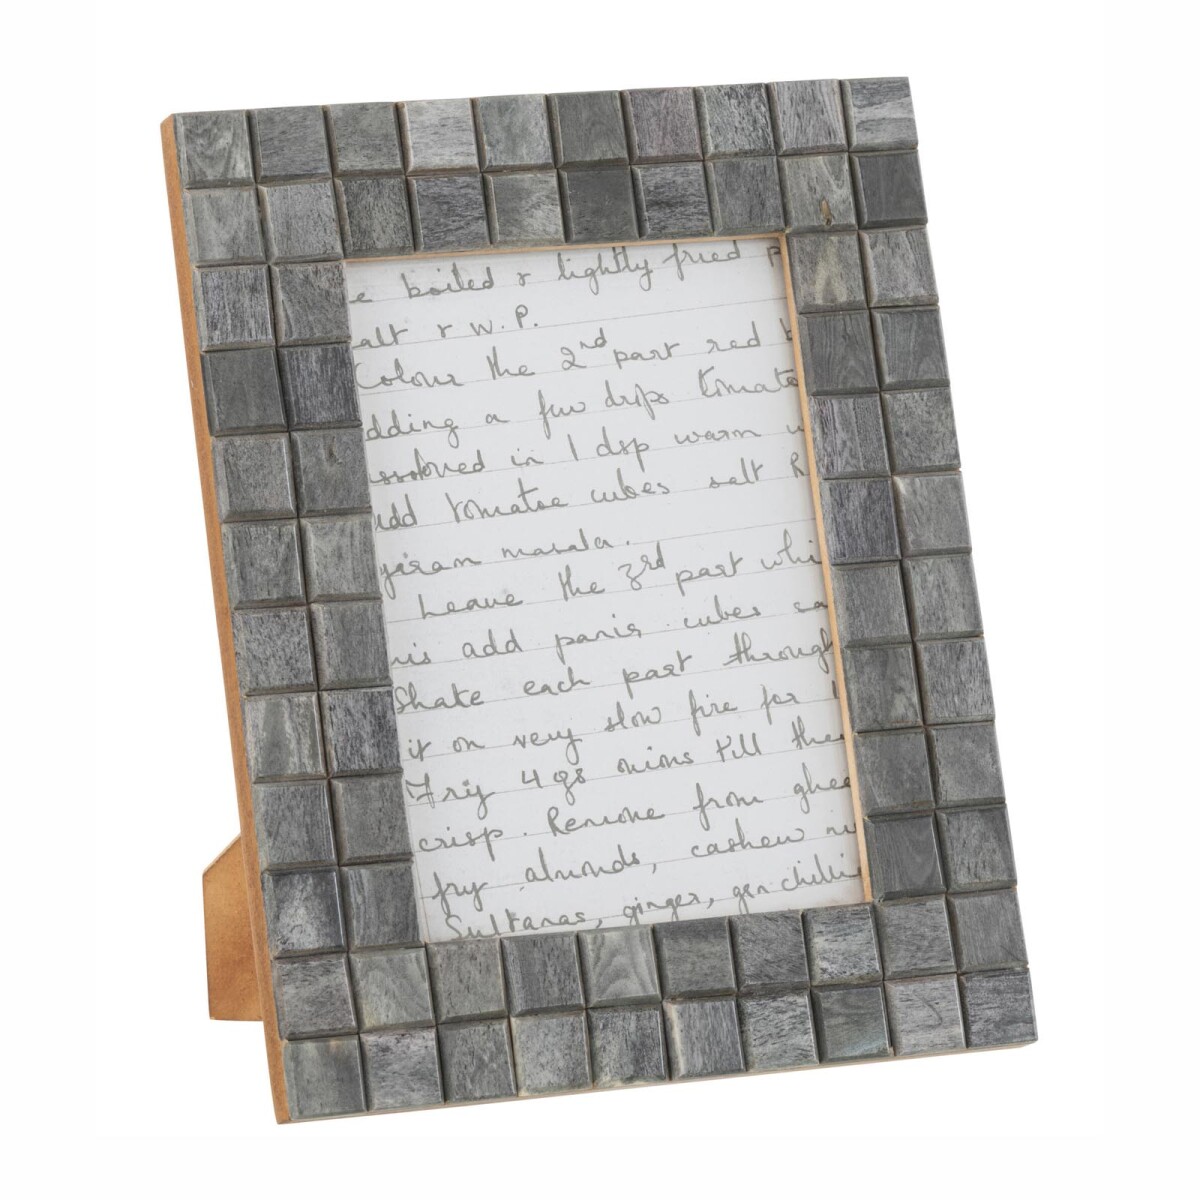 e boiled & lightly fried p
alt & W.P.
Colour the 2nd part red b
dding a few drips tomato
ssolved in 1 dsp warm w
add tomatoe cubes salt R
garam masala.
Leave the 3rd part whi
is add panir cubes sa
Shake each part through
it on very slow fire for 1
Fry 4 gs onions till the
crisp. Remove from ghee
fry almonds, cashew nu
Sultanas, ginger, grn chilli